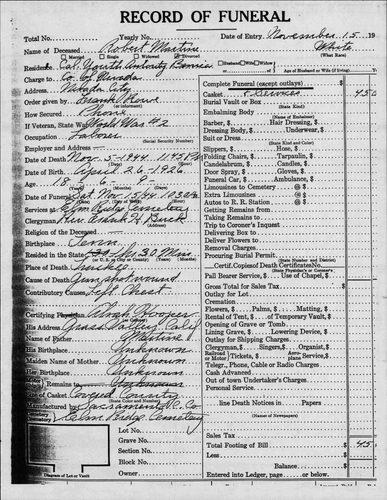 RECORD OF FUNERAL
Total No. Yearly No. Date of Entry November 15 19
Name of Deceased Robert Martine White
Married Single Widowed Divorced Husband Widow (What Race)
Residence Cal. Youth Authority Age of Husband or Wife (if living)
Charge to Co. of Nevada
Nevada City
Order given by Frank Rowe
How Secured Phone
If Veteran, State War World War #2
Occupation Laborer
(Social Security Number)
Employer and Address
Date of Death Nov. 5-1944 11:45 P
Date of Birth April 26-1926
Age 18 6 9
Date of Funeral Sat. Nov. 18/44 10:30 A
Services at Elm Ridge Cemetery
Clergyman Rev. Frank H. Buck
Religion of the Deceased
Birthplace Tenn
Resided in the State 30 Mins.
(or U. S. or City or County) (Years) (Months) (Days)
Place of Death Truckee
Cause of Death Gun shot wound
Contributory Causes Left Chest
Certifying Physician Alvah Hooper
His Address Grass Valley, Calif
Name of Father Martine
His Birthplace Unknown
Maiden Name of Mother Unknown
Her Birthplace Unknown
Remains to Unknown
Size of Casket Covered County
(State Color and Number)
Manufactured by Sacramento C. Co
Cemetery Elm Ridge Cemetery
Lot No.
Grave No.
Section No.
Block No.
Owner
Diagram of Lot or Vault
Complete Funeral (except outlays)
Casket & Services 45 0
Burial Vault or Box
(State Kind)
Embalming Body
(Name of Embalmer)
Barber, Hair Dressing,
Dressing Body, Underwear,
Suit or Dress
(State Kind and Color)
Slippers, Hose,
Folding Chairs, Tarpaulin,
Candelabrum, Candles,
Door Spray, Gloves,
Funeral Car, Ambulance,
Limousines to Cemetery @
Extra Limousines @
Autos to R. R. Station @
Getting Remains
Taking Remains
Trip to Coroner's Inquest
Delivering Box to
Deliver Flowers to
Removal Charges
Procuring Burial Permit
(State Physician's or Coroner's)
Certif. Copies of Death Certificate No.
Pall Bearer Service, Use of Chapel,
Gross Total for Sales Tax
Outlay for Lot
Cremation
Flowers, Palms, Matting,
Rental of Tent, of Temporary Vault,
Opening of Grave or Tomb
Lining Grave, Lowering Device,
Outlay for Shipping Charges
Clergyman, Singers, Organist,
Railroad or Motor Tickets, Aeroplane Service,
Telegr., Phone, Cable or Radio Charges
Cash Advanced
Out of town Undertaker's Charges
Personal Service
line Death Notices in Papers
(Names of Newspapers)
Sales Tax
Total Footing of Bill 45
Less
Balance
Entered into Ledger, page or below.